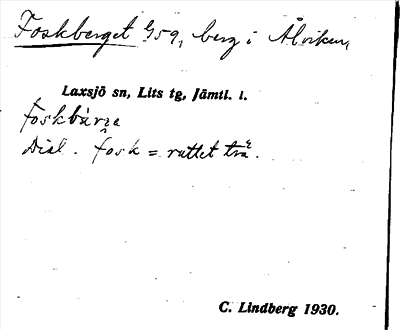 Foskberget G59, berg i Älviken,
Laxsjö sn, Lits tg, Jämtl. l.
foskbärje
Dial. fosk = ruttet trä.
C. Lindberg 1930.